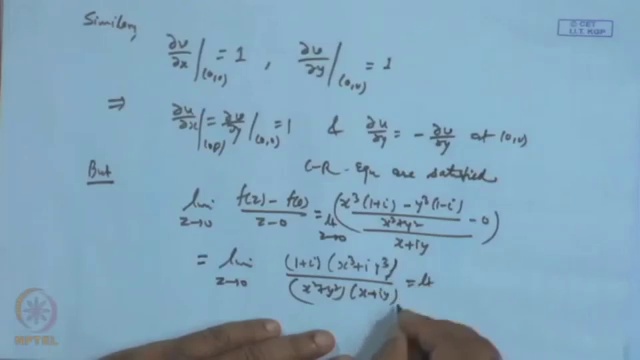 © CET
I.I.T. KGP
Similarly
∂v/∂x|(0,0) = 1 , ∂v/∂y|(0,0) = 1
⇒ ∂u/∂x|(0,0) = ∂v/∂y|(0,0) = 1 & ∂u/∂y = - ∂v/∂y at (0,0)
C-R-Equ are satisfied
But
lim z→0 (f(z) - f(0))/(z-0) = lt z→0 (((x³(1+i) - y³(1-i))/(x²+y²) - 0)/(x+iy))
= lim z→0 ((1+i)(x³+iy³))/((x²+y²)(x+iy)) = lt
NPTEL